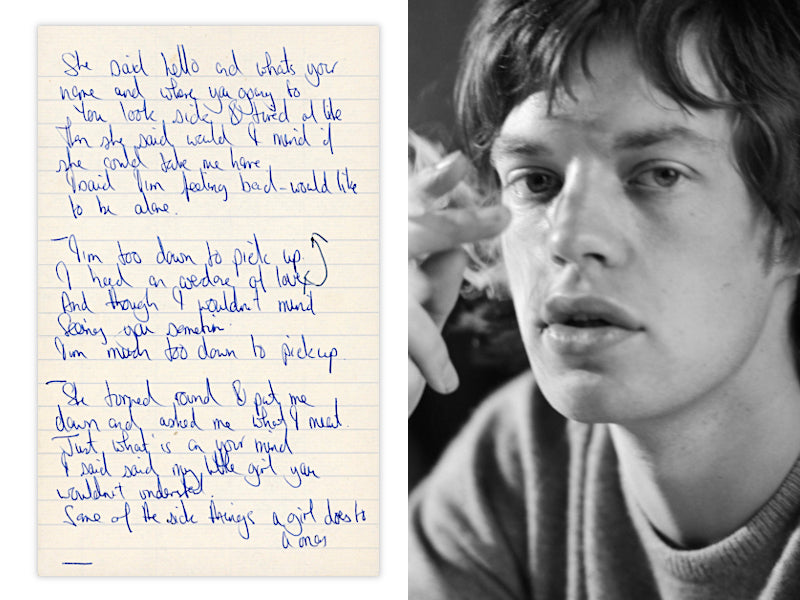 She said hello and whats your
name and where you going to
You look sick & tired of life
Then she said would I mind if
she could take me home
I said I'm feeling bad - would like
to be alone.
I'm too down to pick up.
I need an overdose of love
And though I wouldn't mind
Seeing you sometim
I'm much too down to pick up
She turned round & put me
down and asked me what I meat.
Just what is on your mind
I said said my little girl you
wouldn't understed.
Some of the sick things a girl does to
a man